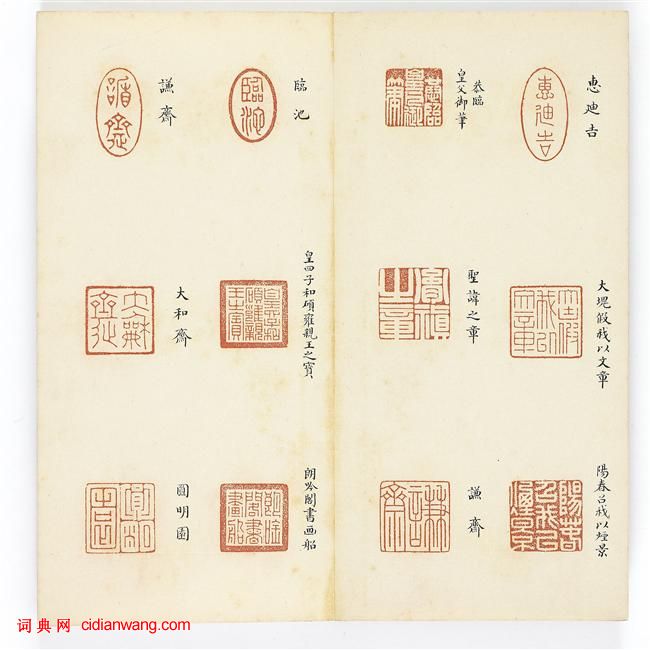 惠迪吉
大塊假我以文章
陽春召我以煙景
恭臨
皇父御筆
聖諱之章
謙齋
臨池
皇四子和碩雍親王之寶
朗吟閣書画船
謙齋
大和齋
圓明園
词典网 cidianwang.com